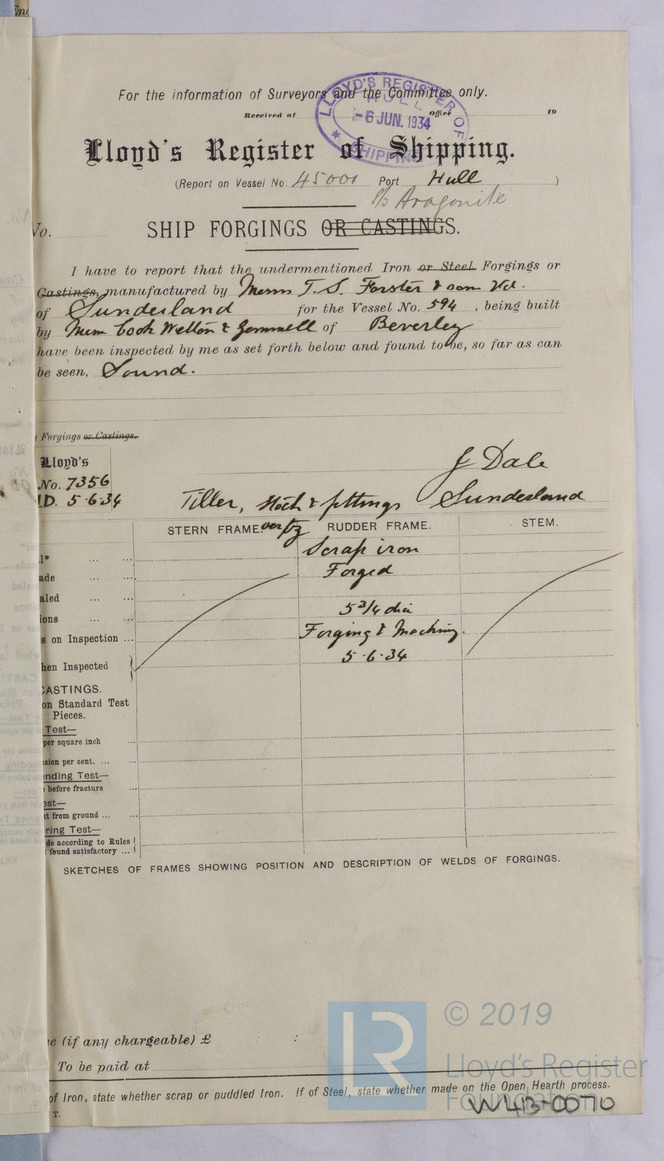 For the information of Surveyors and the Committee only.
Received at Office 19
LLOYD'S REGISTER OF SHIPPING HULL
-6 JUN. 1934
Lloyd's Register of Shipping.
(Report on Vessel No. 45001 Port Hull )
S/S Aragonite
No. SHIP FORGINGS OR CASTINGS.
I have to report that the undermentioned Iron or Steel Forgings or
Castings, manufactured by Messrs T. S. Forster & son Ltd.
of Sunderland for the Vessel No. 594 , being built
by Messrs Cook Welton & Gemmell of Beverley
have been inspected by me as set forth below and found to be, so far as can
be seen, Sound.
Forgings or Castings.
Lloyd's
No. 7356
J Dale
D. 5·6·34
Tiller, Stock & fittings Sunderland
STERN FRAME. RUDDER FRAME. STEM.
Scrap iron
ade Forged
aled
ions 5 3/4 dia
s on Inspection ... Forging & Maching.
hen Inspected 5·6·34
CASTINGS.
on Standard Test
Pieces.
Test—
per square inch
sion per cent. ...
ending Test—
before fracture
est—
t from ground ...
ring Test—
de according to Rules
found satisfactory ...
SKETCHES OF FRAMES SHOWING POSITION AND DESCRIPTION OF WELDS OF FORGINGS.
e (if any chargeable) £ :
To be paid at
of Iron, state whether scrap or puddled Iron. If of Steel, state whether made on the Open Hearth process.
T.
LR
© 2019
Lloyd's Register
Foundation
W43-0070